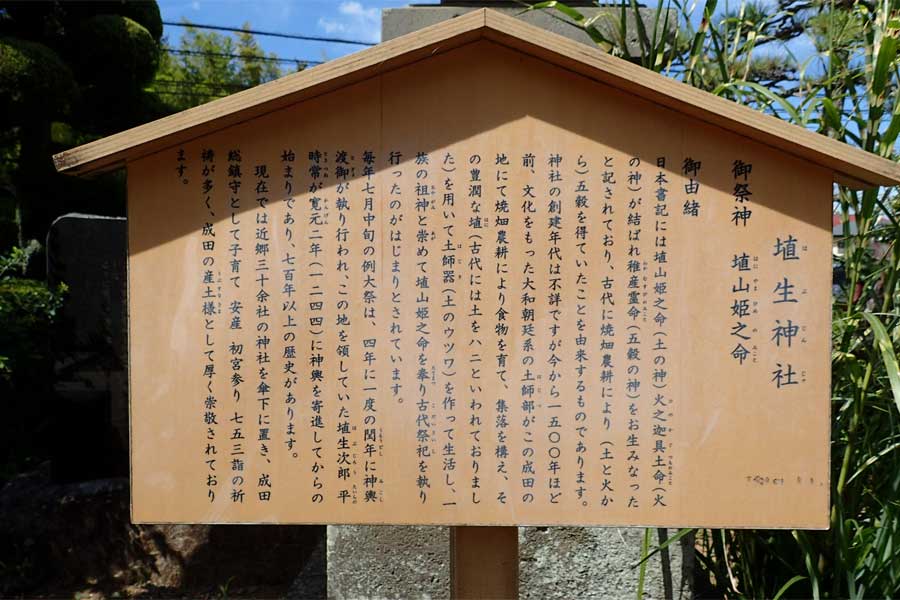 埴生神社
御祭神　埴山姫之命
御由緒
日本書記には埴山姫之命（土の神）火之迦具土命（火
の神）が結ばれ稚産霊命（五穀の神）をお生みなった
と記されており、古代に焼畑農耕により（土と火か
ら）五穀を得ていたことを由来するものであります。
神社の創建年代は不詳ですが今から一五〇〇年ほど
前、文化をもった大和朝廷系の土師部がこの成田の
地にて焼畑農耕により食物を育て、集落を構え、そ
の豊潤な埴（古代には土をハニといわれておりまし
た）を用いて土師器（土のウツワ）を作って生活し、一
族の祖神と崇めて埴山姫之命を奉り古代祭祀を執り
行ったのがはじまりとされています。
毎年七月中旬の例大祭は、四年に一度の閏年に神輿
渡御が執り行われ、この地を領していた埴生次郎　平
時常が寛元二年（一二四四）に神輿を寄進してからの
始まりであり、七百年以上の歴史があります。
現在では近郷三十余社の神社を傘下に置き、成田
総鎮守として子育て　安産　初宮参り　七五三詣の祈
祷が多く、成田の産土様として厚く崇敬されており
ます。